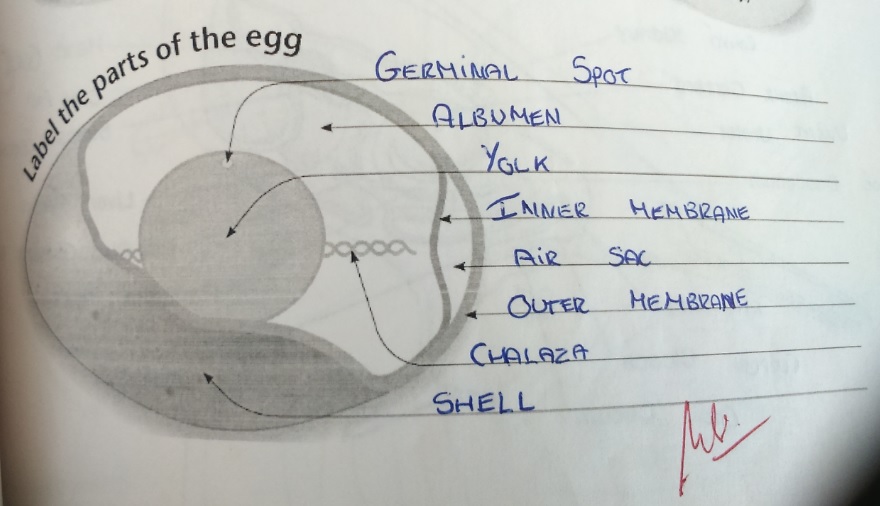 Label the parts of the egg
GERMINAL SPOT
ALBUMEN
YOLK
INNER MEMBRANE
AIR SAC
OUTER MEMBRANE
CHALAZA
SHELL